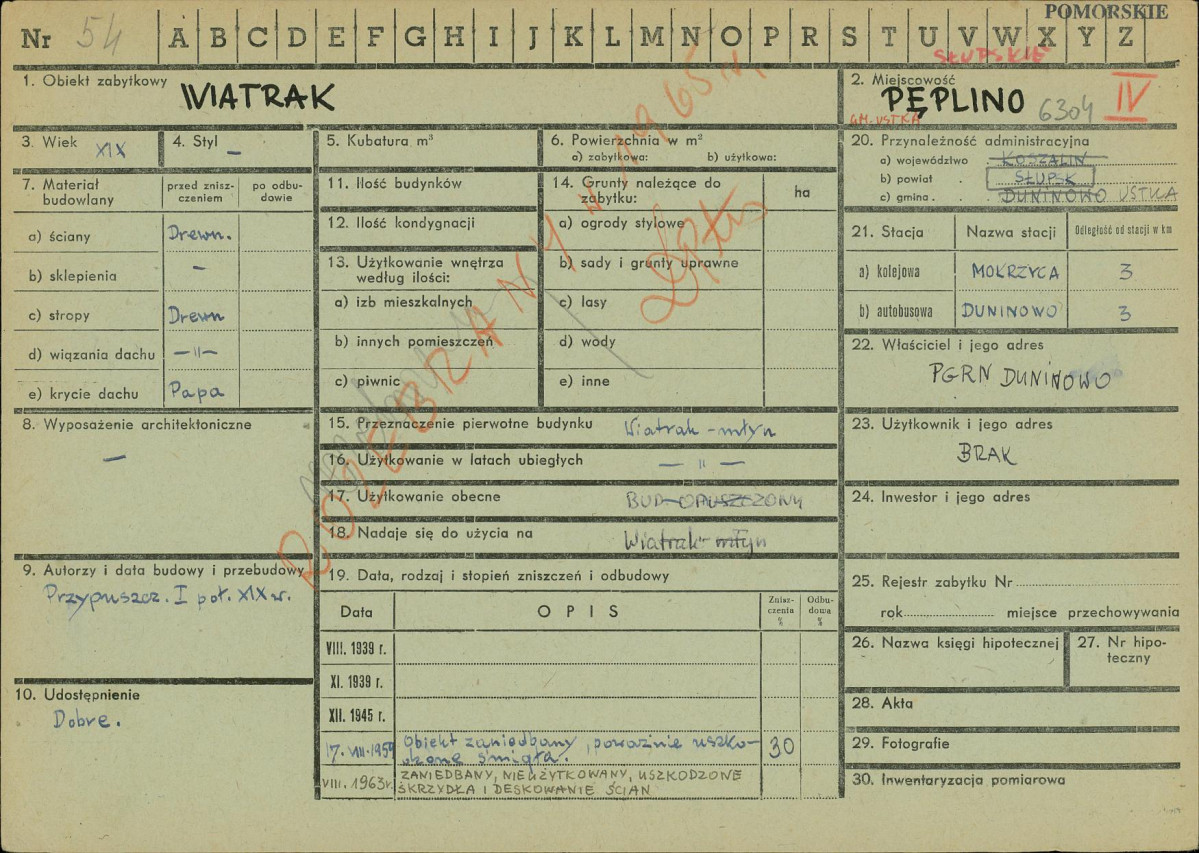 POMORSKIE
Nr 54 A B C D E F G H I J K L M N O P R S T U V W X Y Z
SŁUPSKIE
1. Obiekt zabytkowy WIATRAK
2. Miejscowość PĘPLINO 6304 IV
GM. USTKA
3. Wiek XIX
4. Styl –
5. Kubatura m³
6. Powierzchnia w m²
a) zabytkowa: b) użytkowa:
7. Materiał budowlany
przed zniszczeniem
po odbudowie
a) ściany Drewn.
b) sklepienia –
c) stropy Drewn
d) wiązania dachu –„–
e) krycie dachu Papa
8. Wyposażenie architektoniczne
–
9. Autorzy i data budowy i przebudowy
Przypuszcz. I poł. XIX w.
10. Udostępnienie
Dobre.
11. Ilość budynków
12. Ilość kondygnacji
13. Użytkowanie wnętrza
według ilości:
a) izb mieszkalnych
b) innych pomieszczeń
c) piwnic
14. Grunty należące do
zabytku:
ha
a) ogrody stylowe
b) sady i grunty uprawne
c) lasy
d) wody
e) inne
ROZEBRANY W 1965 r.
15. Przeznaczenie pierwotne budynku Wiatrak – młyn
16. Użytkowanie w latach ubiegłych – „ –
17. Użytkowanie obecne BUD. OPUSZCZONY
18. Nadaje się do użycia na Wiatrak – młyn
19. Data, rodzaj i stopień zniszczeń i odbudowy
Data OPIS Zniszczenia % Odbudowa %
VIII. 1939 r.
XI. 1939 r.
XII. 1945 r.
17. VIII. 1959 Obiekt zaniedbany, poważnie uszko- 30
dzone śmigła.
VIII. 1963 r. ZANIEDBANY, NIEUŻYTKOWANY, USZKODZONE
SKRZYDŁA I DESKOWANIE ŚCIAN
20. Przynależność administracyjna
a) województwo KOSZALIN
b) powiat . SŁUPSK
c) gmina . DUNINOWO USTKA
21. Stacja Nazwa stacji Odległość od stacji w km
a) kolejowa MOKRZYCA 3
b) autobusowa DUNINOWO 3
22. Właściciel i jego adres
PGRN DUNINOWO
23. Użytkownik i jego adres
BRAK
24. Inwestor i jego adres
25. Rejestr zabytku Nr
rok miejsce przechowywania
26. Nazwa księgi hipotecznej
27. Nr hipoteczny
28. Akta
29. Fotografie
30. Inwentaryzacja pomiarowa